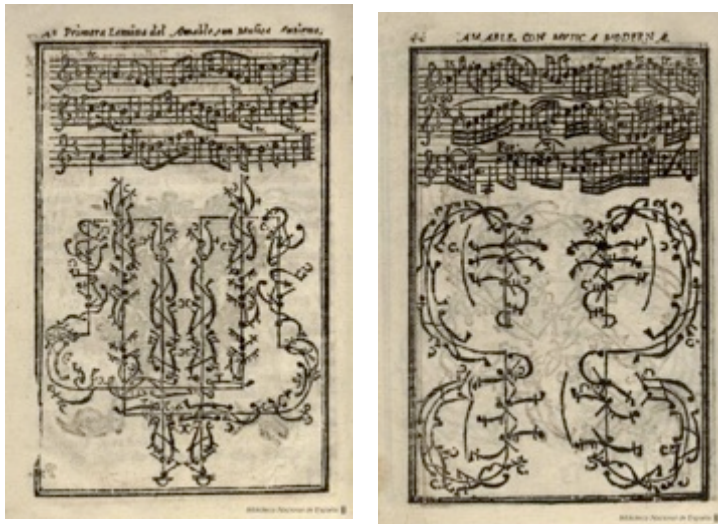 Primera Lamina del Amable, con Musica
Biblioteca Nacional de España
44 AMABLE. CON MVSICA MODERNA.
Biblioteca Nacional de España